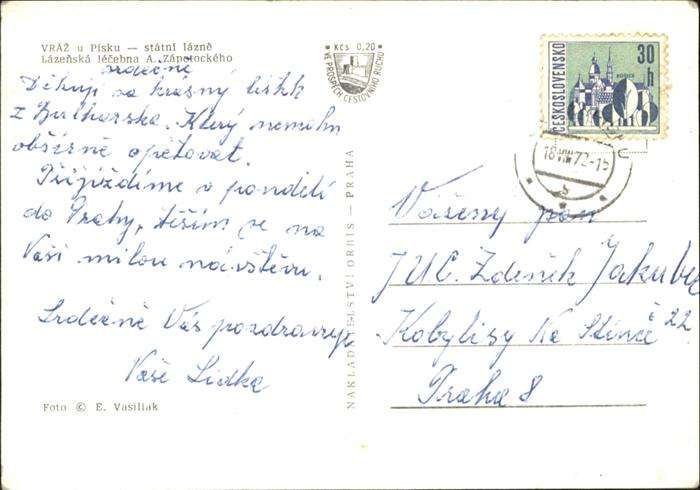 VRÁŽ u Písku — státní lázně
Lázeňská léčebna A. Zápotockého
srdečně
Děkuji za krásný lístek
z Bulharska. Který nemohu
obšírně opětovat.
Přijíždíme v pondělí
do Prahy, těším se na
Vaši milou návštěvu.
Srdečně Vás pozdravuje
Vaše Lidka
Foto © E. Vasiliak
NAKLADATELSTVÍ ORBIS — PRAHA
Kčs 0,20
VE PROSPĚCH CESTOVNÍHO RUCHU
ČESKOSLOVENSKO
30 h
18.VIII.72-15
Vážený pan
JUC. Zdeněk Jakubec
Kobylisy Na Slinně 22
Praha 8